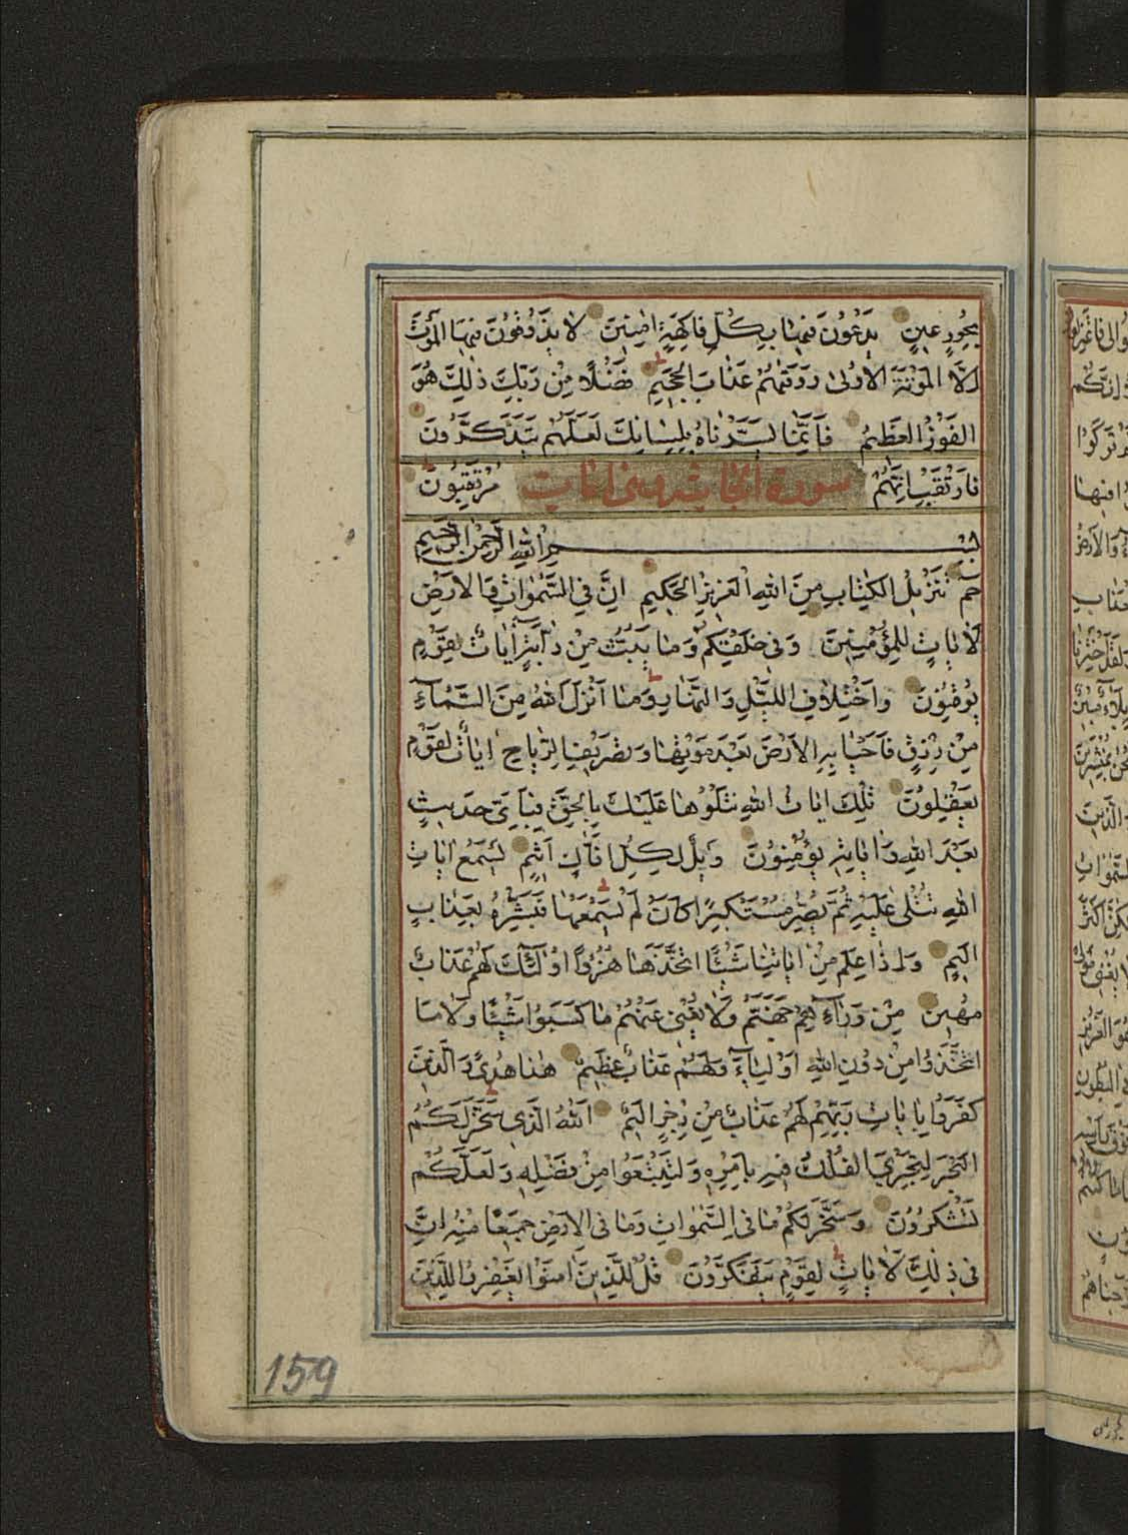 بِحُورٍ عِينٍ يَدْعُونَ فِيهَا بِكُلِّ فَاكِهَةٍ آمِنِينَ لَا يَذُوقُونَ فِيهَا الْمَوْتَ
إِلَّا الْمَوْتَةَ الْأُولَىٰ وَوَقَيٰهُمْ عَذَابَ الْجَحِيمِ فَضْلًا مِنْ رَبِّكَ ذٰلِكَ هُوَ
الْفَوْزُ الْعَظِيمُ فَإِنَّمَا يَسَّرْنَاهُ بِلِسَانِكَ لَعَلَّهُمْ يَتَذَكَّرُونَ
فَارْتَقِبْ إِنَّهُمْ مُرْتَقِبُونَ
سورة الجاثية
بِسْمِ اللهِ الرَّحْمٰنِ الرَّحِيمِ
حم تَنْزِيلُ الْكِتَابِ مِنَ اللهِ الْعَزِيزِ الْحَكِيمِ إِنَّ فِي السَّمٰوَاتِ وَالْأَرْضِ
لَآيَاتٍ لِلْمُؤْمِنِينَ وَفِي خَلْقِكُمْ وَمَا يَبُثُّ مِنْ دَآبَّةٍ آيَاتٌ لِقَوْمٍ
يُوقِنُونَ وَاخْتِلَافِ اللَّيْلِ وَالنَّهَارِ وَمَا أَنْزَلَ اللهُ مِنَ السَّمَآءِ
مِنْ رِزْقٍ فَأَحْيَا بِهِ الْأَرْضَ بَعْدَ مَوْتِهَا وَتَصْرِيفِ الرِّيَاحِ آيَاتٌ لِقَوْمٍ
يَعْقِلُونَ تِلْكَ آيَاتُ اللهِ نَتْلُوهَا عَلَيْكَ بِالْحَقِّ فَبِأَيِّ حَدِيثٍ
بَعْدَ اللهِ وَآيَاتِهِ يُؤْمِنُونَ وَيْلٌ لِكُلِّ أَفَّاكٍ أَثِيمٍ يَسْمَعُ آيَاتِ
اللهِ تُتْلَىٰ عَلَيْهِ ثُمَّ يُصِرُّ مُسْتَكْبِرًا كَأَنْ لَمْ يَسْمَعْهَا فَبَشِّرْهُ بِعَذَابٍ
أَلِيمٍ وَإِذَا عَلِمَ مِنْ آيَاتِنَا شَيْئًا اتَّخَذَهَا هُزُوًا أُولٰٓئِكَ لَهُمْ عَذَابٌ
مُهِينٌ مِنْ وَرَآئِهِمْ جَهَنَّمُ وَلَا يُغْنِي عَنْهُمْ مَا كَسَبُوا شَيْئًا وَلَا مَا
اتَّخَذُوا مِنْ دُونِ اللهِ أَوْلِيَآءَ وَلَهُمْ عَذَابٌ عَظِيمٌ هٰذَا هُدًى وَالَّذِينَ
كَفَرُوا بِآيَاتِ رَبِّهِمْ لَهُمْ عَذَابٌ مِنْ رِجْزٍ أَلِيمٌ اَللهُ الَّذِي سَخَّرَ لَكُمُ
الْبَحْرَ لِتَجْرِيَ الْفُلْكُ فِيهِ بِأَمْرِهِ وَلِتَبْتَغُوا مِنْ فَضْلِهِ وَلَعَلَّكُمْ
تَشْكُرُونَ وَسَخَّرَ لَكُمْ مَا فِي السَّمٰوَاتِ وَمَا فِي الْأَرْضِ جَمِيعًا مِنْهُ إِنَّ
فِي ذٰلِكَ لَآيَاتٍ لِقَوْمٍ يَتَفَكَّرُونَ قُلْ لِلَّذِينَ آمَنُوا يَغْفِرُوا لِلَّذِينَ
159